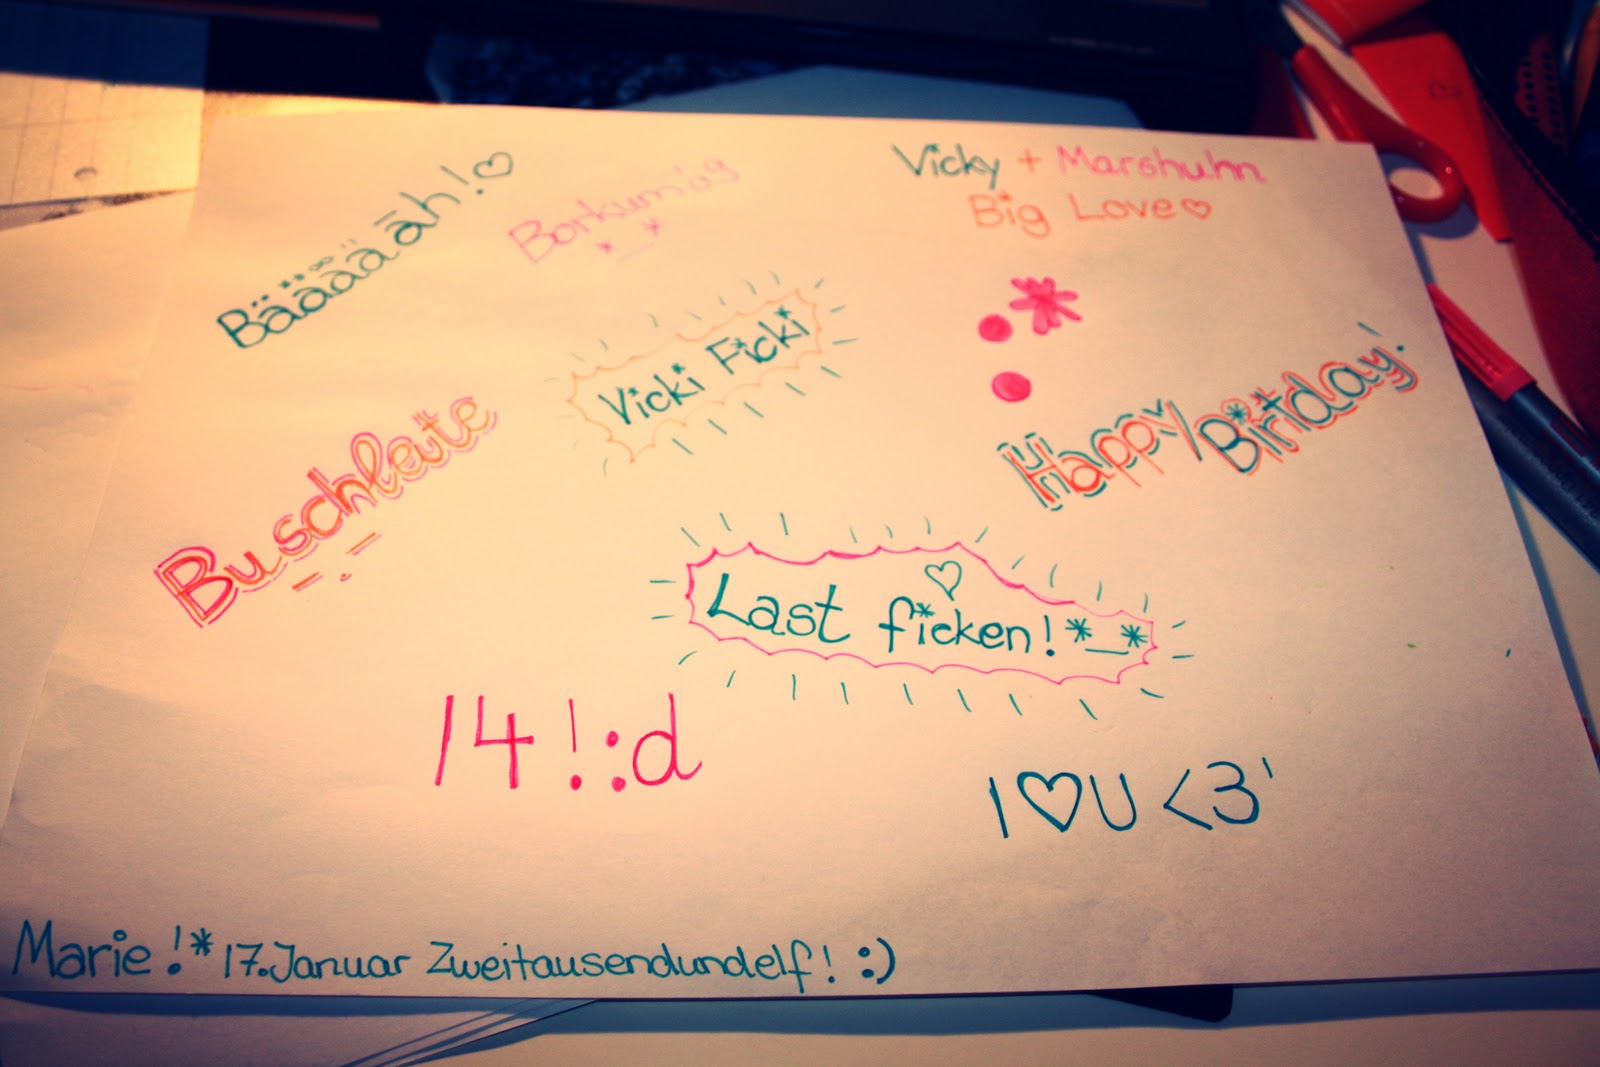 Bäääääh!♡
*_*
Vicky + Marshuhn
Big Love♡
Vicki Ficki
:*
Buschleute
Happy Birtday!
Last ficken! *_*
14!:d
I ♡ U <3'
Marie!* 17.Januar Zweitausendundelf! :)